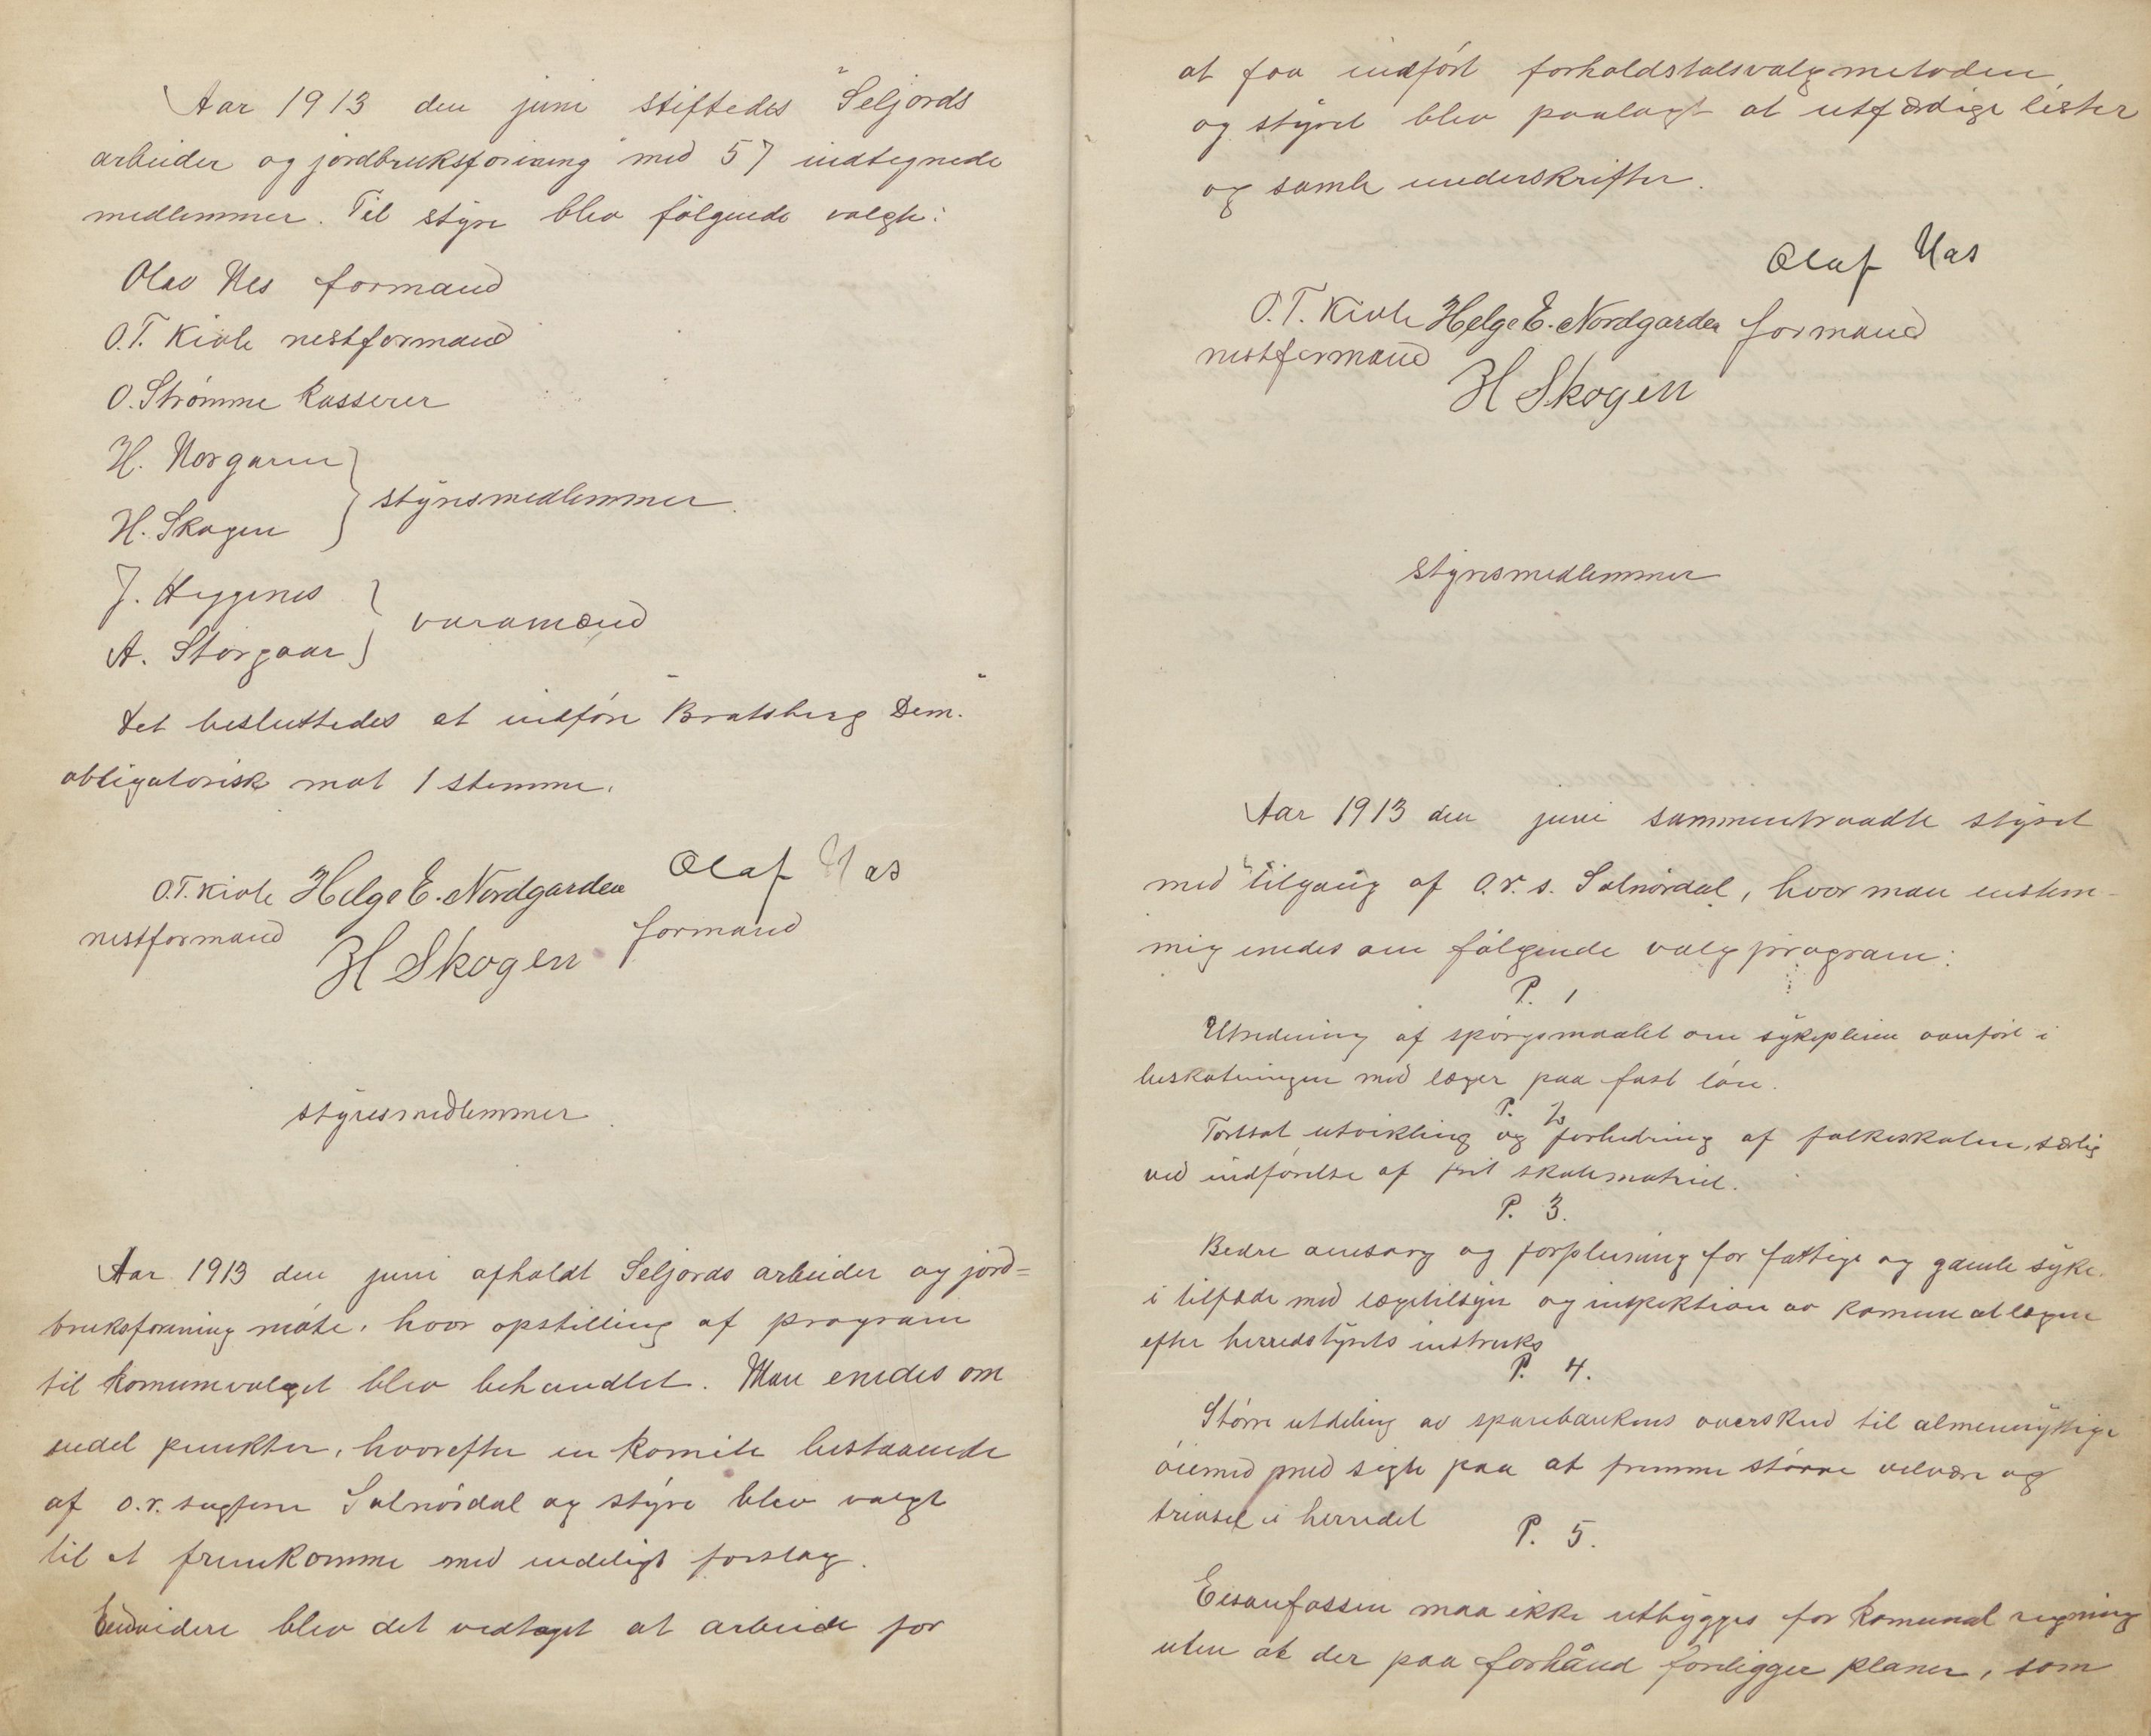 Aar 1913 den juni stiftedes "Seljords
arbeider og jordbruksforening" med 57 indtegnede
medlemmer. Til styre blev følgende valgt:
Olav Nes formand
O.T. Kivle nestformand
O. Strømme kasserer
H. Norgaren
H. Skogen } styresmedlemmer.
J. Heggenes
A. Storgaar } varamænd
Det besluttedes at indføre "Bratsberg Dem."
obligatorisk mot 1 stemme.
Olaf Nas
O.T. Kivle Helge E. Nordgarden formand
nestformand H Skogen
styresmedlemmer
Aar 1913 den juni afholdt Seljords arbeider og jord=
bruksforening møte, hvor opstilling af program
til komunevalget blev behandlet. Man enedes om
endel punkter, hvorefter en komite bestaaende
af o.r. sagfører Salnørdal og styre blev valgt
til at fremkomme med endeligt forslag.
Endvidere blev det vedtaget at arbeide for
at faa indført forholdstalsvalgmetoden
og styret blev paalagt at utfærdige lister
og samle underskrifter.
Olaf Nas
O.T. Kivle Helge E. Nordgarden formand
nestformand H Skogen
styresmedlemmer
Aar 1913 den juni sammentraadte styret
med tilgang af O.r.s. Salnørdal, hvor man enstem-
mig enedes om følgende valgprogram:
P. 1
Utredning af spørgsmaalet om sykepleien overført i
beskatningen med læger paa fast løn.
P. 2
Fortsat utvikling og forbedring af folkeskolen, særlig
ved indførelse af frit skolematriel.
P. 3.
Bedre omsorg og forpleining for fattige og gamle syke.
i tilfælde med lægetilsyn og inspektion av komunelægen
efter herredstyrets instruks
P. 4.
Større utdeling av sparebankens overskud til almennyttige
øiemed med sigte paa at fremme større velvære og
trivsel i herredet
P. 5.
Eisanfossen maa ikke utbygges for komunal regning
uten at der paa forhånd foreligger planer, som